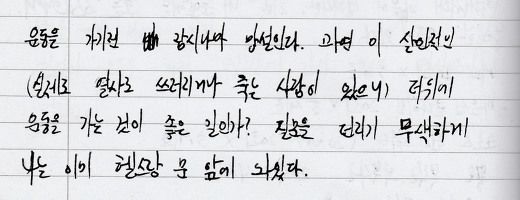 운동을 가기전 매 잠시나마 망설인다. 과연 이 살인적인
(실제로 열사로 쓰러리거나 죽는 사람이 있으니) 더위에
운동을 가는 것이 좋은 일인가? 질문을 던리기 무색하게
나는 이미 헬스랑 문 앞에 와있다.